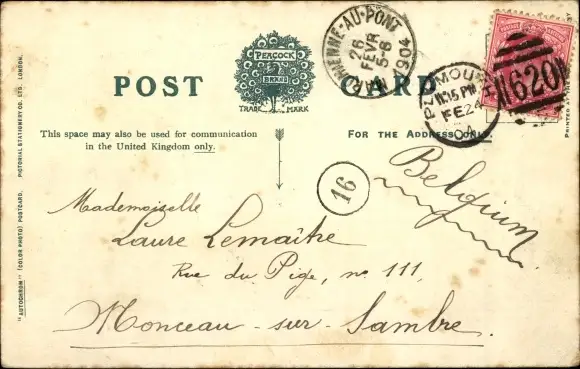 POST CARD
PEACOCK
BRAND
TRADE MARK
This space may also be used for communication
in the United Kingdom only.
FOR THE ADDRESS ONLY.
MARCHIENNE-AU-PONT
26
FEVR
5-6
1904
PLYMOUTH
11.15 PM
FE 24
04
620
16
Belgium.
Mademoiselle
Laure Lemaître
Rue du Pige, no 111,
Monceau-sur-Sambre.
"AUTOCHROM" (COLOR PHOTO) POSTCARD. PICTORIAL STATIONERY CO. LTD. LONDON.
PRINTED AT THE